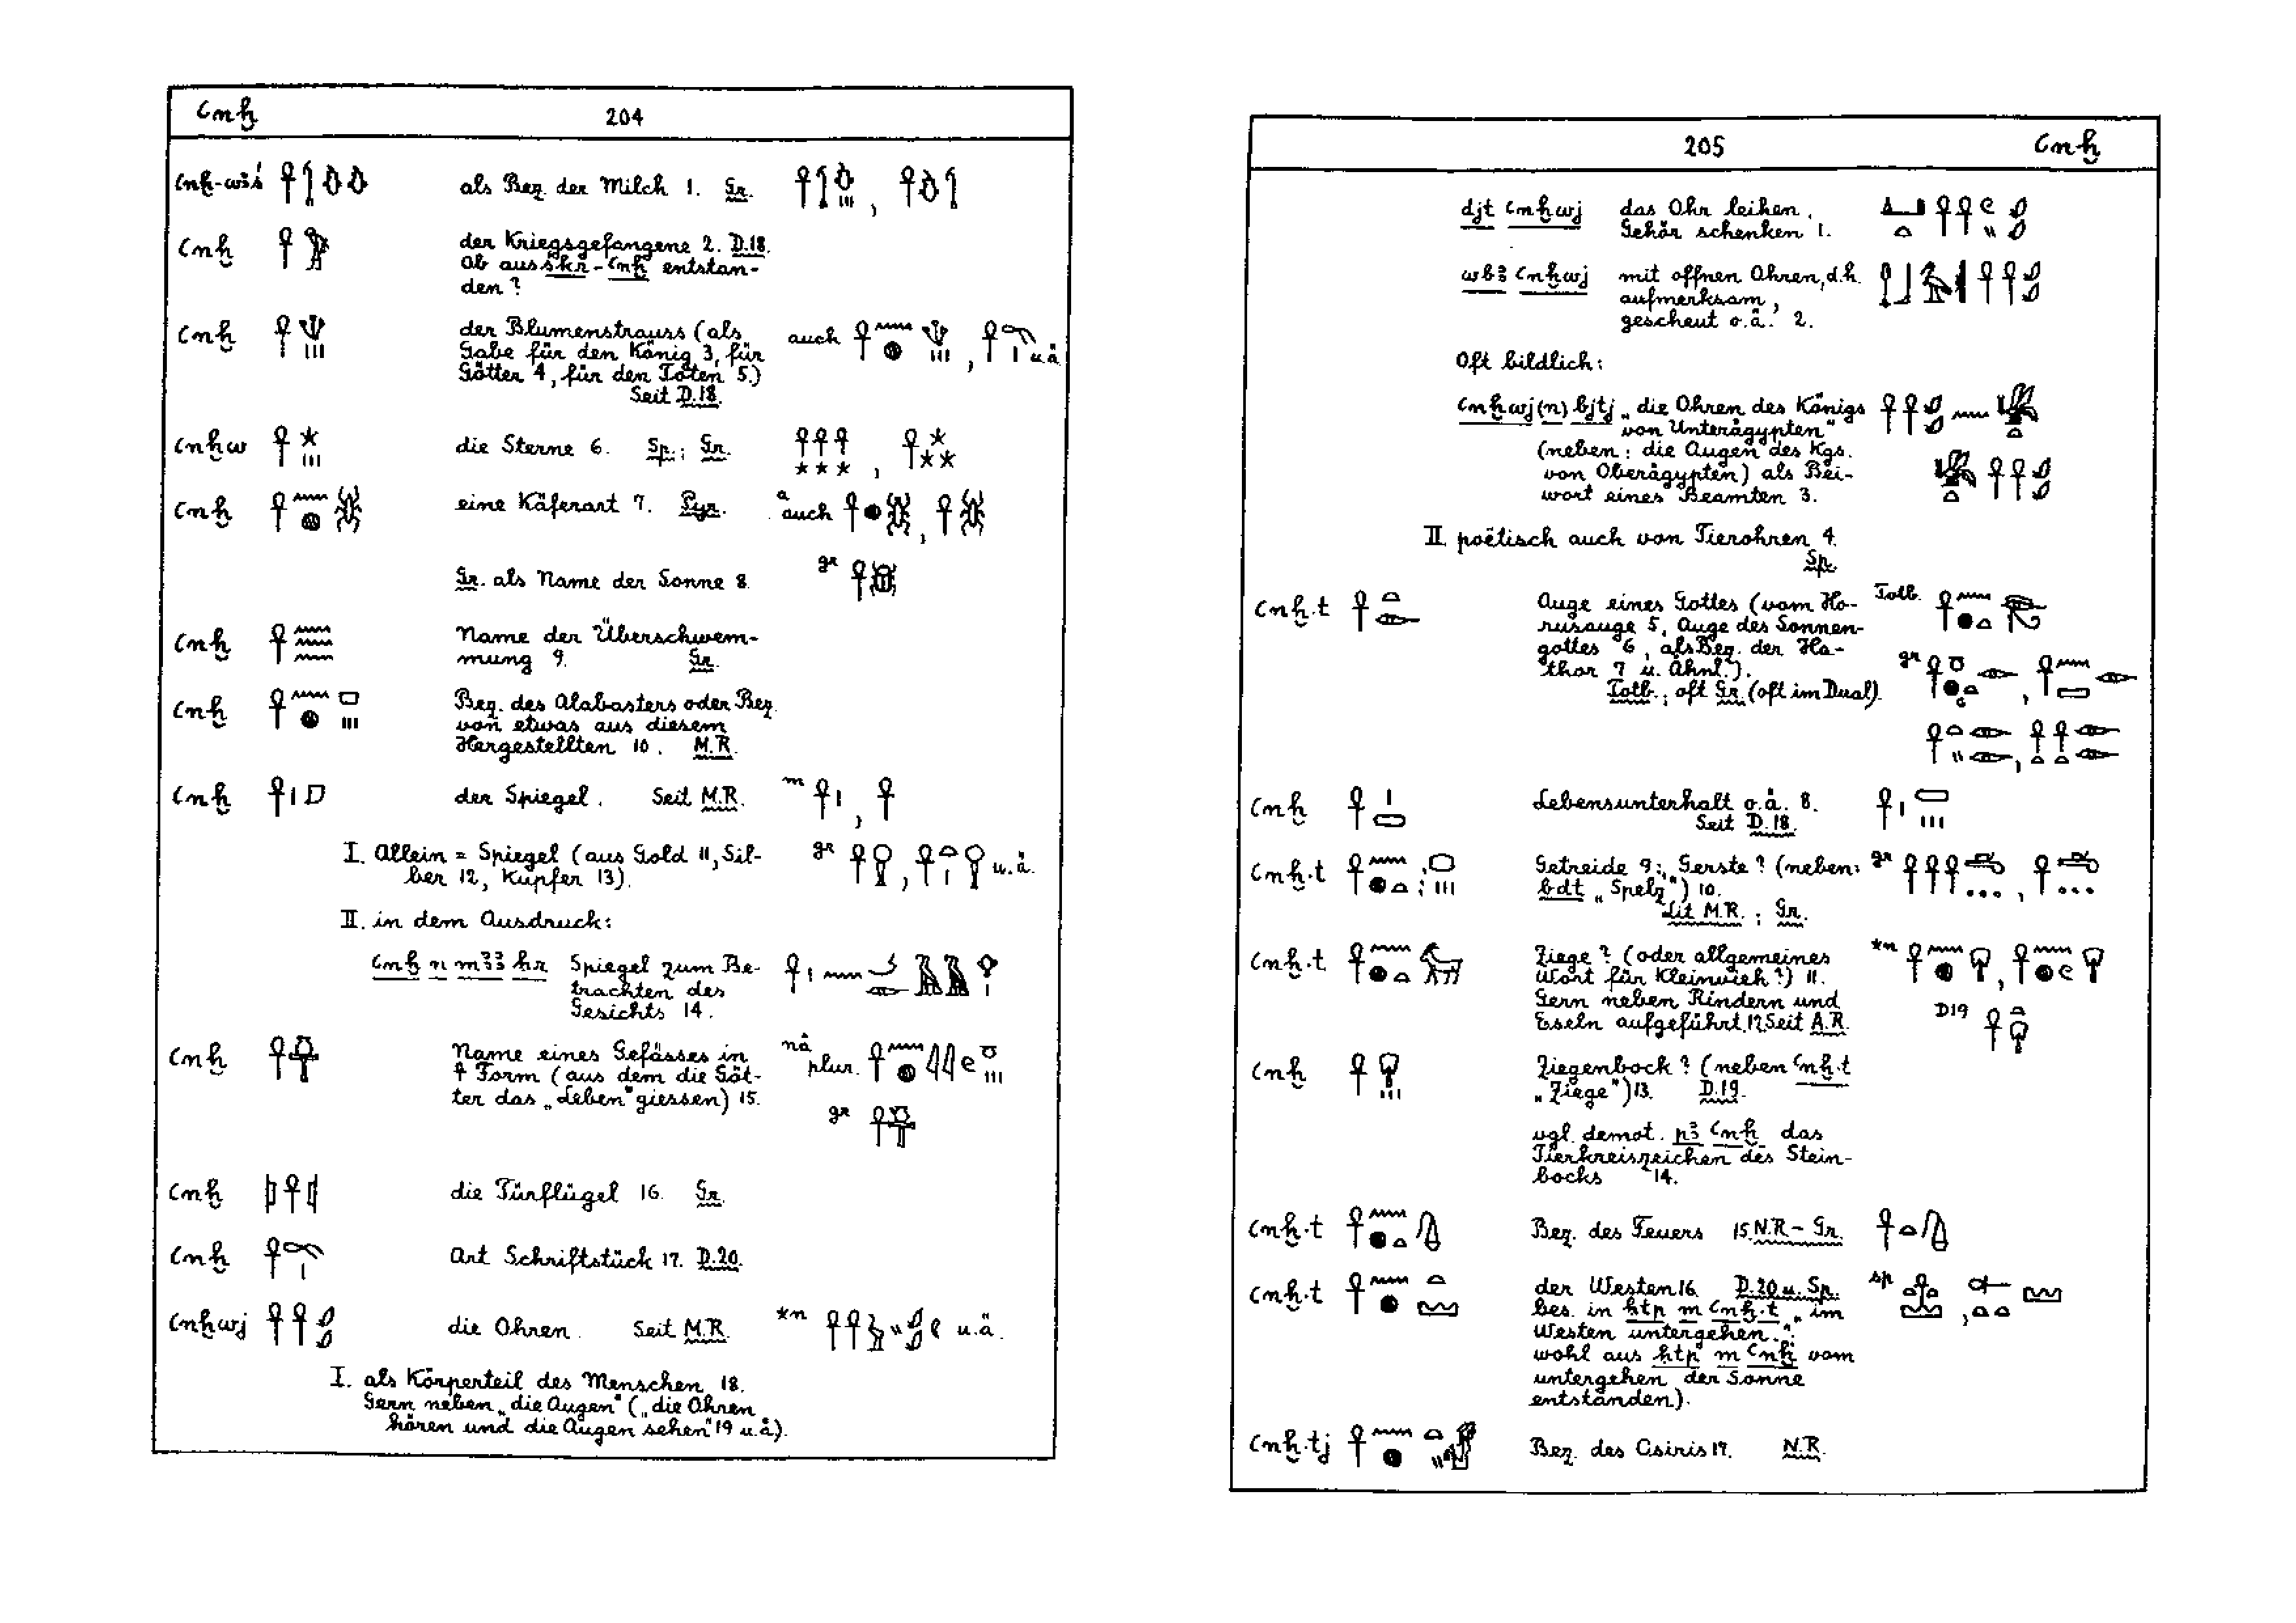 ꜥnḫ 204
ꜥnḫ-wꜣś als Bez. der Milch 1. Gr.
ꜥnḫ der Kriegsgefangene 2. D.18.
Ob aus skr-ꜥnḫ entstan-
den?
ꜥnḫ der Blumenstrauss (als auch
Gabe für den König 3, für u.ä
Götter 4, für den Toten 5.)
Seit D.18.
ꜥnḫw die Sterne 6. Sp.; Gr.
ꜥnḫ eine Käferart 7. Pyr. a auch
Gr. als Name der Sonne 8. gr
ꜥnḫ Name der Überschwem-
mung 9. Gr.
ꜥnḫ Bez. des Alabasters oder Bez.
von etwas aus diesem
Hergestellten 10. M.R.
ꜥnḫ der Spiegel. Seit M.R. m
I. Allein = Spiegel (aus Gold 11, Sil- gr u.ä.
ber 12, Kupfer 13).
II. in dem Ausdruck:
ꜥnḫ n mꜣꜣ ḥr Spiegel zum Be-
trachten des
Gesichts 14.
ꜥnḫ Name eines Gefässes in nä
☥ Form (aus dem die Göt- plur.
ter das „Leben" giessen) 15.
gr
ꜥnḫ die Türflügel 16. Gr.
ꜥnḫ Art Schriftstück 17. D.20.
ꜥnḫwj die Ohren. Seit M.R. *n u.ä.
I. als Körperteil des Menschen 18.
Gern neben „die Augen" („die Ohren
hören und die Augen sehen" 19 u.ä).
205 ꜥnḫ
djt ꜥnḫwj das Ohr leihen,
Gehör schenken 1.
wbꜣ ꜥnḫwj mit offnen Ohren, d.h.
aufmerksam,
gescheut o.ä. 2.
Oft bildlich:
ꜥnḫwj (n) bjtj „die Ohren des Königs
von Unterägypten"
(neben: die Augen des Kgs.
von Oberägypten) als Bei-
wort eines Beamten 3.
II. poëtisch auch von Tierohren 4.
Sp.
ꜥnḫ.t Auge eines Gottes (vom Ho- Totb.
rusauge 5, Auge des Sonnen-
gottes 6, als Bez. der Ha-
thor 7 u. Ähnl.). gr
Totb.; oft Gr. (oft im Dual).
ꜥnḫ Lebensunterhalt o.ä. 8.
Seit D.18.
ꜥnḫ.t Getreide 9; Gerste? (neben: gr
bdt „Spelz") 10.
Lit M.R.; Gr.
ꜥnḫ.t Ziege? (oder allgemeines *n
Wort für Kleinvieh?) 11.
Gern neben Rindern und
Eseln aufgeführt. 12. Seit A.R. D19
ꜥnḫ Ziegenbock? (neben ꜥnḫ.t
„Ziege") 13. D.19.
vgl. demot. pꜣ ꜥnḫ das
Tierkreiszeichen des Stein-
bocks 14.
ꜥnḫ.t Bez. des Feuers 15. N.R - Gr.
ꜥnḫ.t der Westen 16. D.20 u. Sp. sp
bes. in ḥtp m ꜥnḫ.t „im
Westen untergehen."
wohl aus ḥtp m ꜥnḫ vom
untergehen der Sonne
entstanden).
ꜥnḫ.tj Bez. des Osiris 17. N.R.